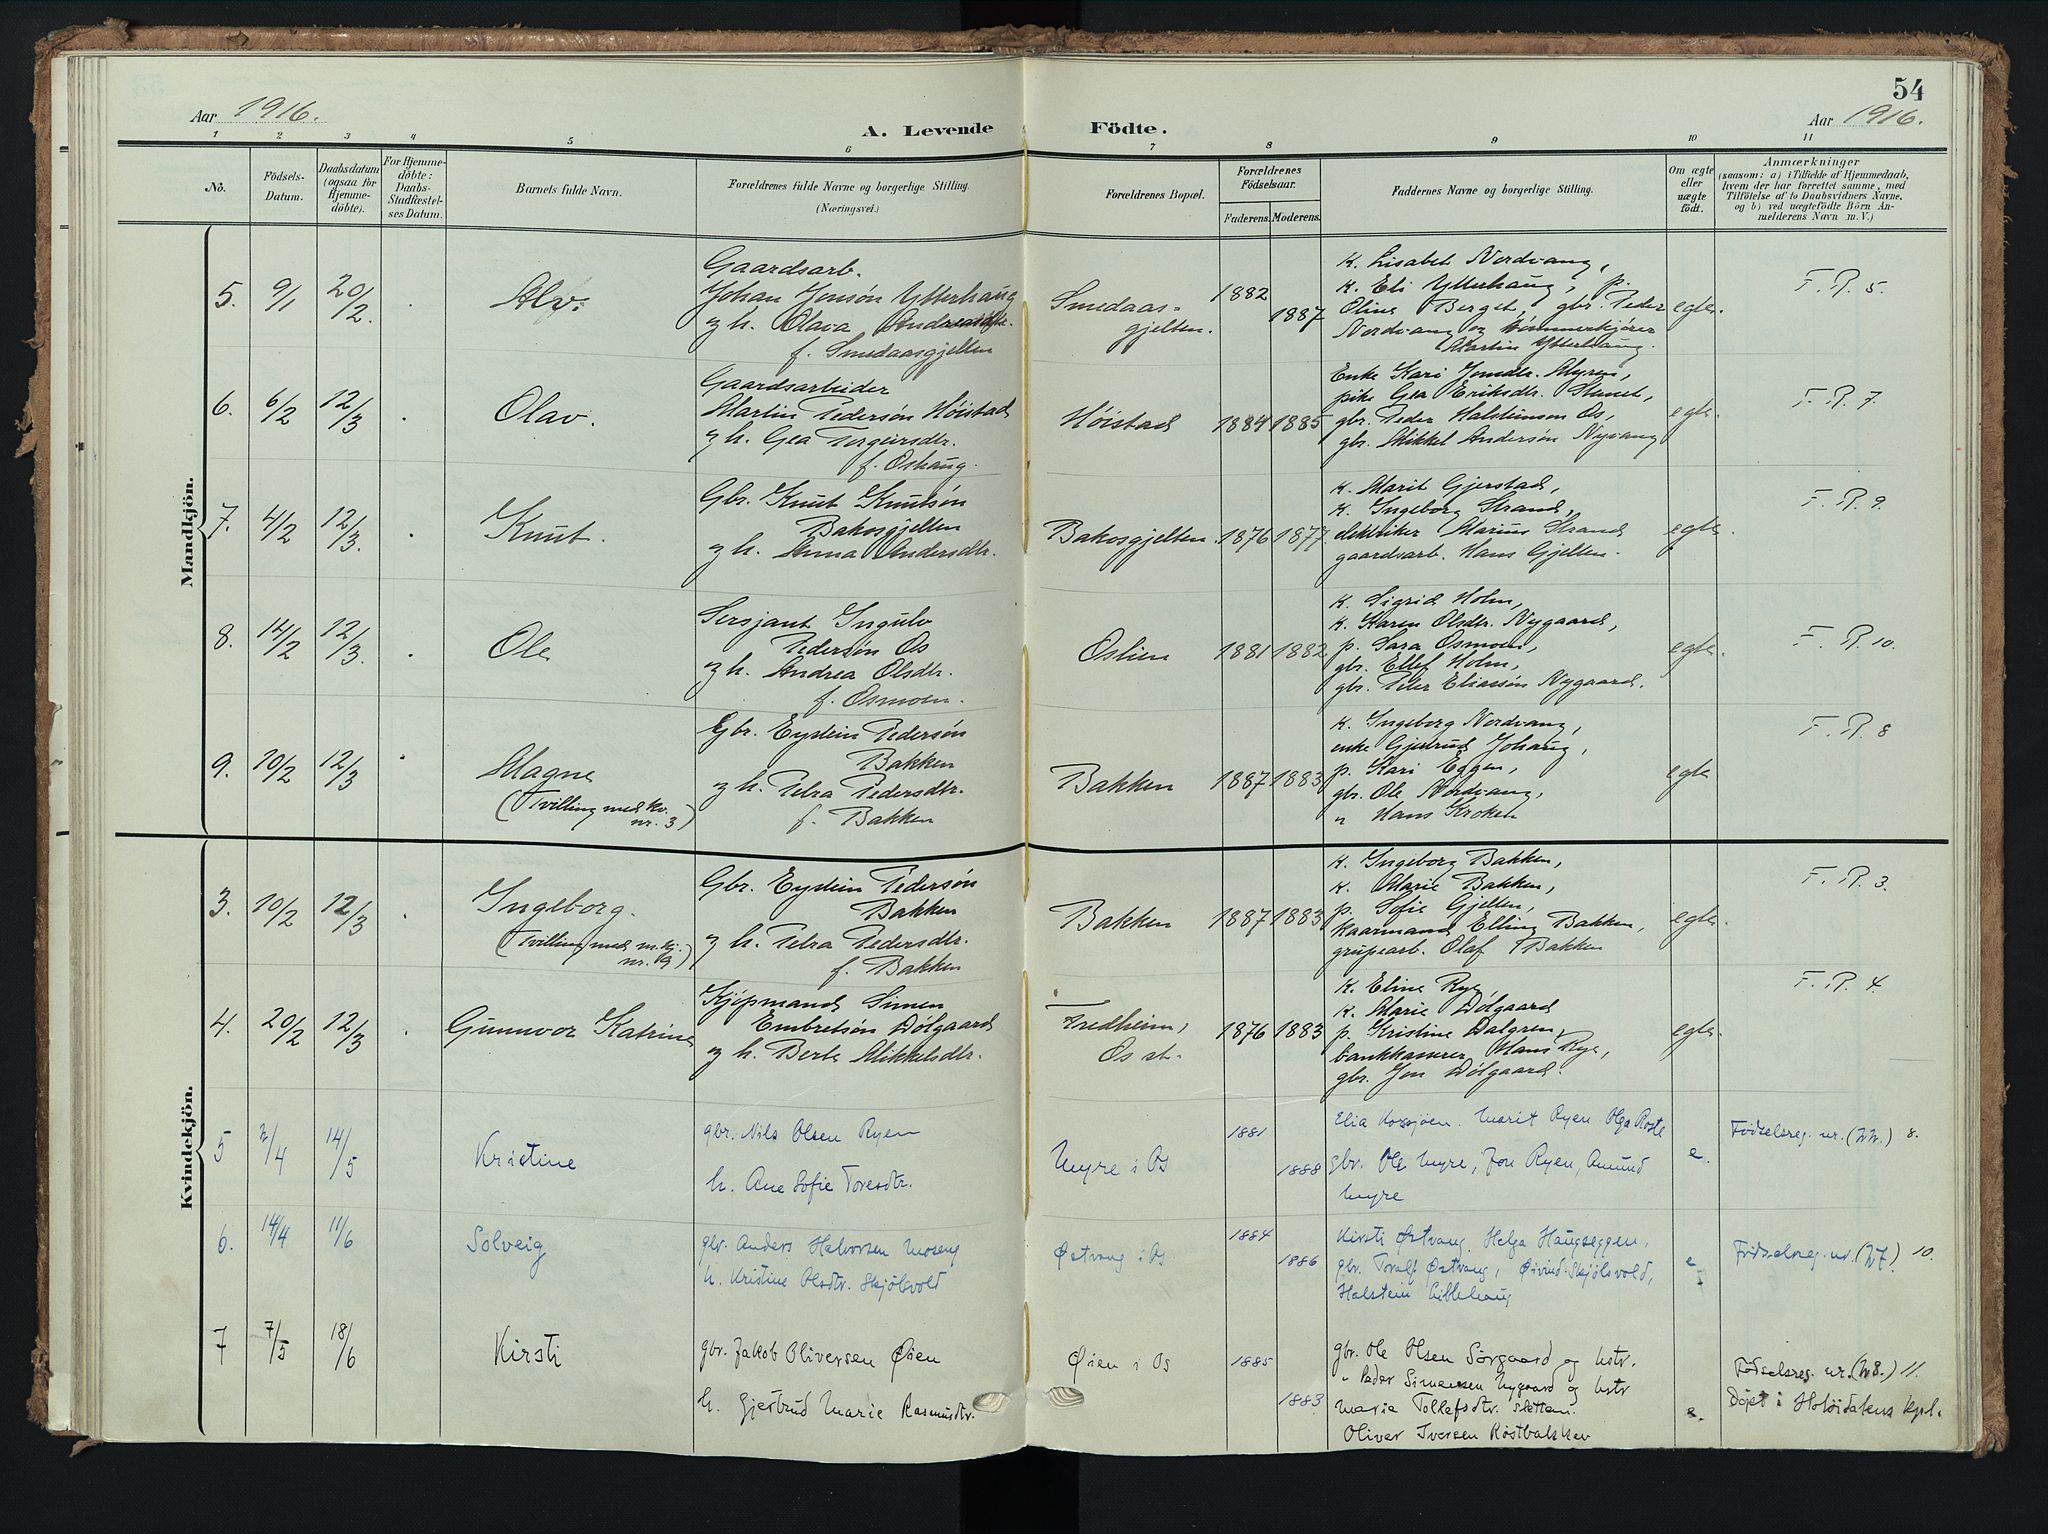 54
Aar 1916.
A. Levende Födte.
Aar 1916.
1 2 3 4 5 6 7 8 9 10 11
No.
Födsels-
Datum.
Daabsdatum
(ogsaa for
Hjemme-
döbte).
For Hjemme-
döbte:
Daabs-
Stadfæstel-
ses Datum.
Barnets fulde Navn.
Forældrenes fulde Navne og borgerlige Stilling.
(Næringsvei.)
Forældrenes Bopæl.
Forældrenes
Födselsaar.
Faderens. Moderens.
Faddernes Navne og borgerlige Stilling.
Om ægte
eller
uægte
födt.
Anmærkninger
(saasom: a) i Tilfælde af Hjemmedaab,
hvem der har forrettet samme, med
Tilföielse af to Daabsvidners Navne,
og b) ved uægtefödte Börn An-
melderens Navn m. V.)
Mandkjön.
5. 9/1 20/2. Alv.
Gaardsarb.
Johan Jonsön Ytterhaug
og h. Olava Andreasdtr.
f. Smedaasgjelten
Smedaas-
gjelten.
1882 1887
K. Lisabet Nordvang,
K. Eli Ytterhaug, p.
Oline Berget, gbr. Peder
Nordvang og tömmerkjörer
Martin Ytterhaug.
egte.
F. R. 5.
6. 6/2 12/3 Olav.
Gaardsarbeider
Martin Pedersön Höistad
og h. Gea Torgeirsdtr.
f. Oshaug.
Höistad 1884 1885
Enke Kari Jonsdtr. Myren,
pike Gea Eriksdtr. Stumet,
gbr. Peder Halsteinson Os,
gbr. Mikkel Andersön Nyvang
egte.
F. R. 7.
7. 4/2 12/3. Knut.
Gbr. Knut Knutsön
Bakosgjelten
og h. Anna Andersdtr.
Bakosgjelten. 1876 1877
K. Marit Gjerstad,
K. Ingeborg Strand,
elektriker Marius Strand
gaardsarb. Hans Gjelten.
egte.
F. R. 9.
8. 14/2 12/3. Ole
Sersjant Ingulv
Pedersön Os
og h. Andrea Olsdtr.
f. Osmoen.
Oslien 1881 1882
K. Sigrid Holm,
K. Karen Olsdtr. Nygaard,
p. Sara Osmoen,
gbr. Ellef Holm,
gbr. Peder Eliassön Nygaard.
egte.
F. R. 10.
9. 10/2 12/3 Magne
(Tvilling med kv.
nr. 3)
Gbr. Eystein Pedersön
Bakken
og h. Petra Pedersdtr.
f. Bakken
Bakken 1887 1883
K. Ingeborg Nordvang,
enke Gjertrud Johaug,
p. Kari Eggen,
gbr. Ole Nordvang,
" Hans Kroken
egte
F. R. 8
Kvindekjön.
3. 10/2 12/3 Ingeborg.
(Tvilling med m.kj.
nr. 9)
Gbr. Eystein Pedersön
Bakken
og h. Petra Pedersdtr.
f. Bakken
Bakken 1887 1883
K. Ingeborg Bakken,
K. Marie Bakken,
p. Sofie Gjelten,
kaarmand Elling Bakken,
grubearb. Olaf Bakken
egte.
F. R. 3.
4. 20/2 12/3 Gunnvor Katrine
Kjöpmand Simen
Embretsön Dölgaard
og h. Berte Mikkelsdtr.
Fredheim,
Os st.
1876 1883
K. Eline Rye,
K. Marie Dölgaard
p. Kristine Dalgren,
bankkasserer Hans Rye,
gbr. Jon Dölgaard.
egte.
F. R. 4.
5 2/4 14/5 Kristine
gbr. Nils Olsen Ryen
h. Ane Sofie Toresdtr.
Myre i Os
1881 1888
Elia Kossjøen. Marit Ryen Olga Røste
gbr. Ole Myre, Jon Ryen, Amund
Myre
e.
Fødselsreg. nr. 8.
6. 14/4 11/6 Solveig
gbr. Anders Halvorsen Moseng
h. Kristine Olsdtr. Skjølsvold
Østvang i Os
1884 1886
Kirsti Østvang. Helga Haugseggen,
gbr. Toralf Østvang, Øivind Skjølsvold,
Halstein
e
Fødselsreg. nr. 10.
7 7/5 18/6 Kirsti
gbr. Jakob Oliversen Øien
h. Gjertrud Marie Rasmusdtr.
Øien i Os
1885 1883
gbr. Ole Olsen Sörgaard og hstr.
" Peder Simensen Nygaard og hstr
Maria Tollefsdtr. Sletten.
Oliver Iversen Röstbakken
e.
Fødselsreg. nr. 11.
Døpt i Holøidalens kpl.